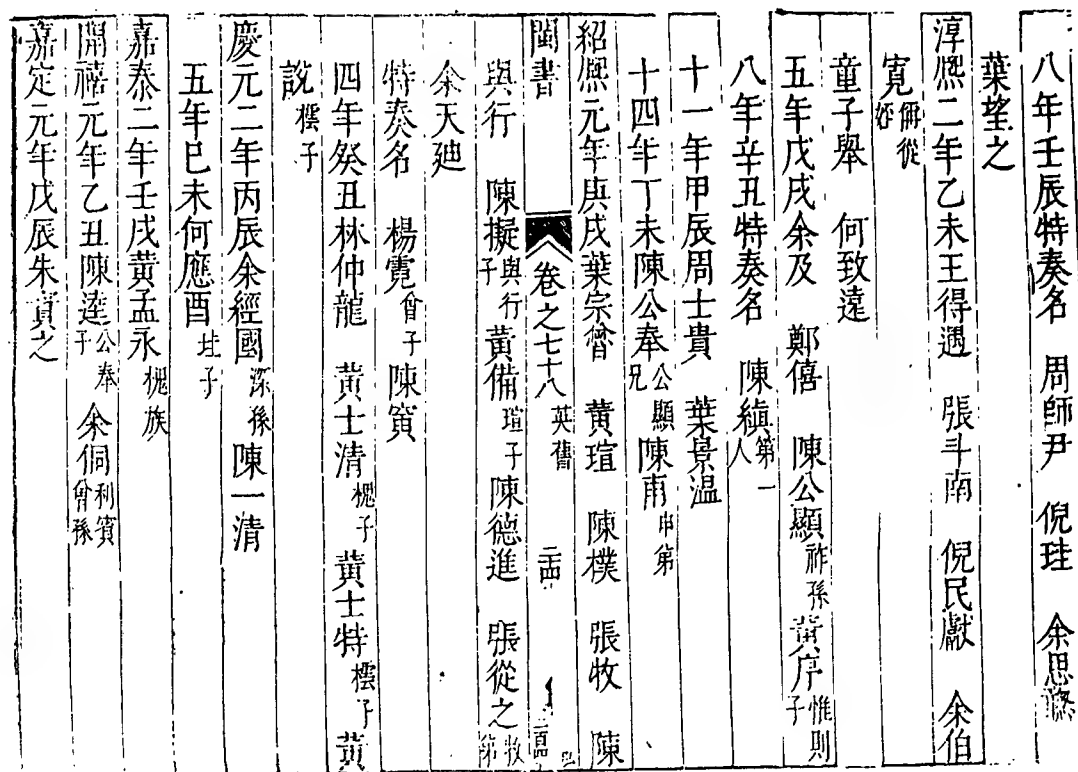 八年壬辰特奏名　周師尹　倪珪　余思
葉望之
淳熙二年乙未王得遇　張斗南　倪民獻　余伯
寛儞從姪
童子舉　何致遠
五年戊戌余及　鄭僖　陳公顯祚孫黃序惟則子
八年辛丑特奏名　陳縝第一人
十一年甲辰周士貴　葉景温
十四年丁未陳公奉公顯兄陳甫申弟
紹熙元年庚戌葉宗魯　黃瑄　陳樸　張牧　陳
閩書　卷之七十八　英舊
與行　陳擬與行子　黃備瑄子陳德進　張從之牧弟
余天廸
特奏名　楊霓會子陳寅
四年癸丑林仲龍　黃士清槐子　黃士特櫄子　黃
說櫄子
慶元二年丙辰余經國深孫陳一清
五年巳未何應酉珪子
嘉泰二年壬戌黃孟永槐族
開禧元年乙丑陳逵公奉子余侗利賓曾孫
嘉定元年戊辰朱賁之